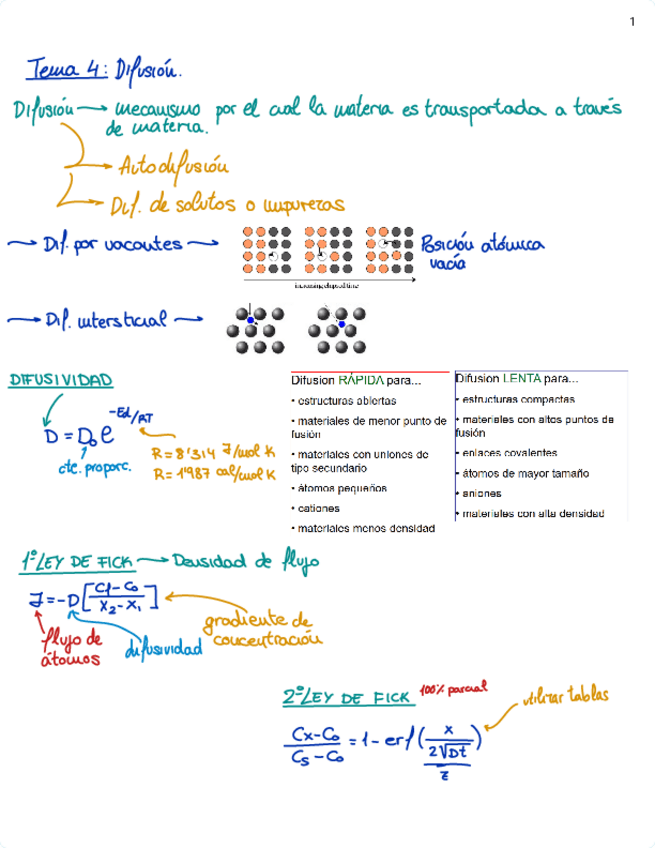 1
Tema 4: Difusión.
Difusión → mecanismo por el cual la materia es transportada a través
de materia.
→ Autodifusión
→ Dif. de solutos o impurezas
→ Dif. por vacantes →
Posición atómica
vacía
increasing elapsed time
→ Dif. intersticial →
DIFUSIVIDAD
D = D₀ e^(-Ed/RT)
cte. proporc.
R = 8'314 J/mol K
R = 1'987 cal/mol K
Difusion RÁPIDA para...
• estructuras abiertas
• materiales de menor punto de
fusión
• materiales con uniones de
tipo secundario
• átomos pequeños
• cationes
• materiales menos densidad
Difusion LENTA para...
• estructuras compactas
• materiales con altos puntos de
fusión
• enlaces covalentes
• átomos de mayor tamaño
• aniones
• materiales con alta densidad
1ª LEY DE FICK → Densidad de flujo
J = -D [(Cf - C₀)/(X₂ - X₁)]
flujo de
átomos
difusividad
gradiente de
concentración
2ª LEY DE FICK 100% parcial
utilizar tablas
(Cx - C₀)/(Cs - C₀) = 1 - erf (x/(2√Dt))
z